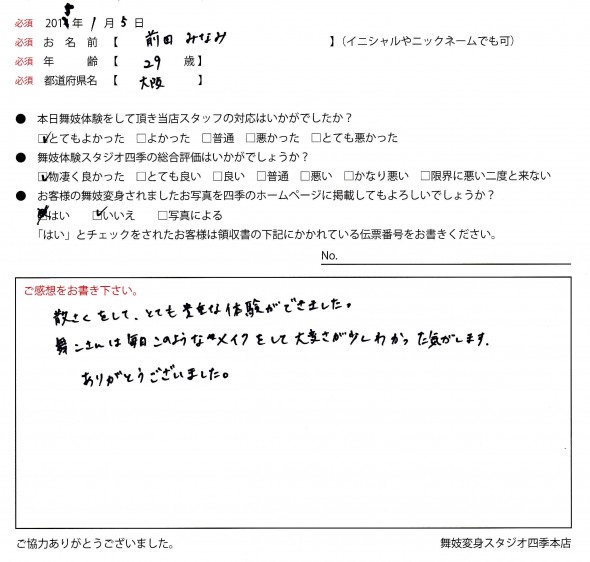 必須 2018年 1月 5日
必須 お名前【 前田 みなみ 】（イニシャルやニックネームでも可）
必須 年齢【 29 歳】
必須 都道府県名【 大阪 】
● 本日舞妓体験をして頂き当店スタッフの対応はいかがでしたか？
☑とてもよかった □よかった □普通 □悪かった □とても悪かった
● 舞妓体験スタジオ四季の総合評価はいかがでしょうか？
☑物凄く良かった □とても良い □良い □普通 □悪い □かなり悪い □限界に悪い二度と来ない
● お客様の舞妓変身されましたお写真を四季のホームページに掲載してもよろしいでしょうか？
はい ☑いいえ □写真による
「はい」とチェックをされたお客様は領収書の下記にかかれている伝票番号をお書きください。
No.
ご感想をお書き下さい。
散さくをして、とても貴重な体験ができました。
舞こさんは毎日このようなメイクをして大変さが少しわかった気がします.
ありがとうございました。
ご協力ありがとうございました。
舞妓変身スタジオ四季本店